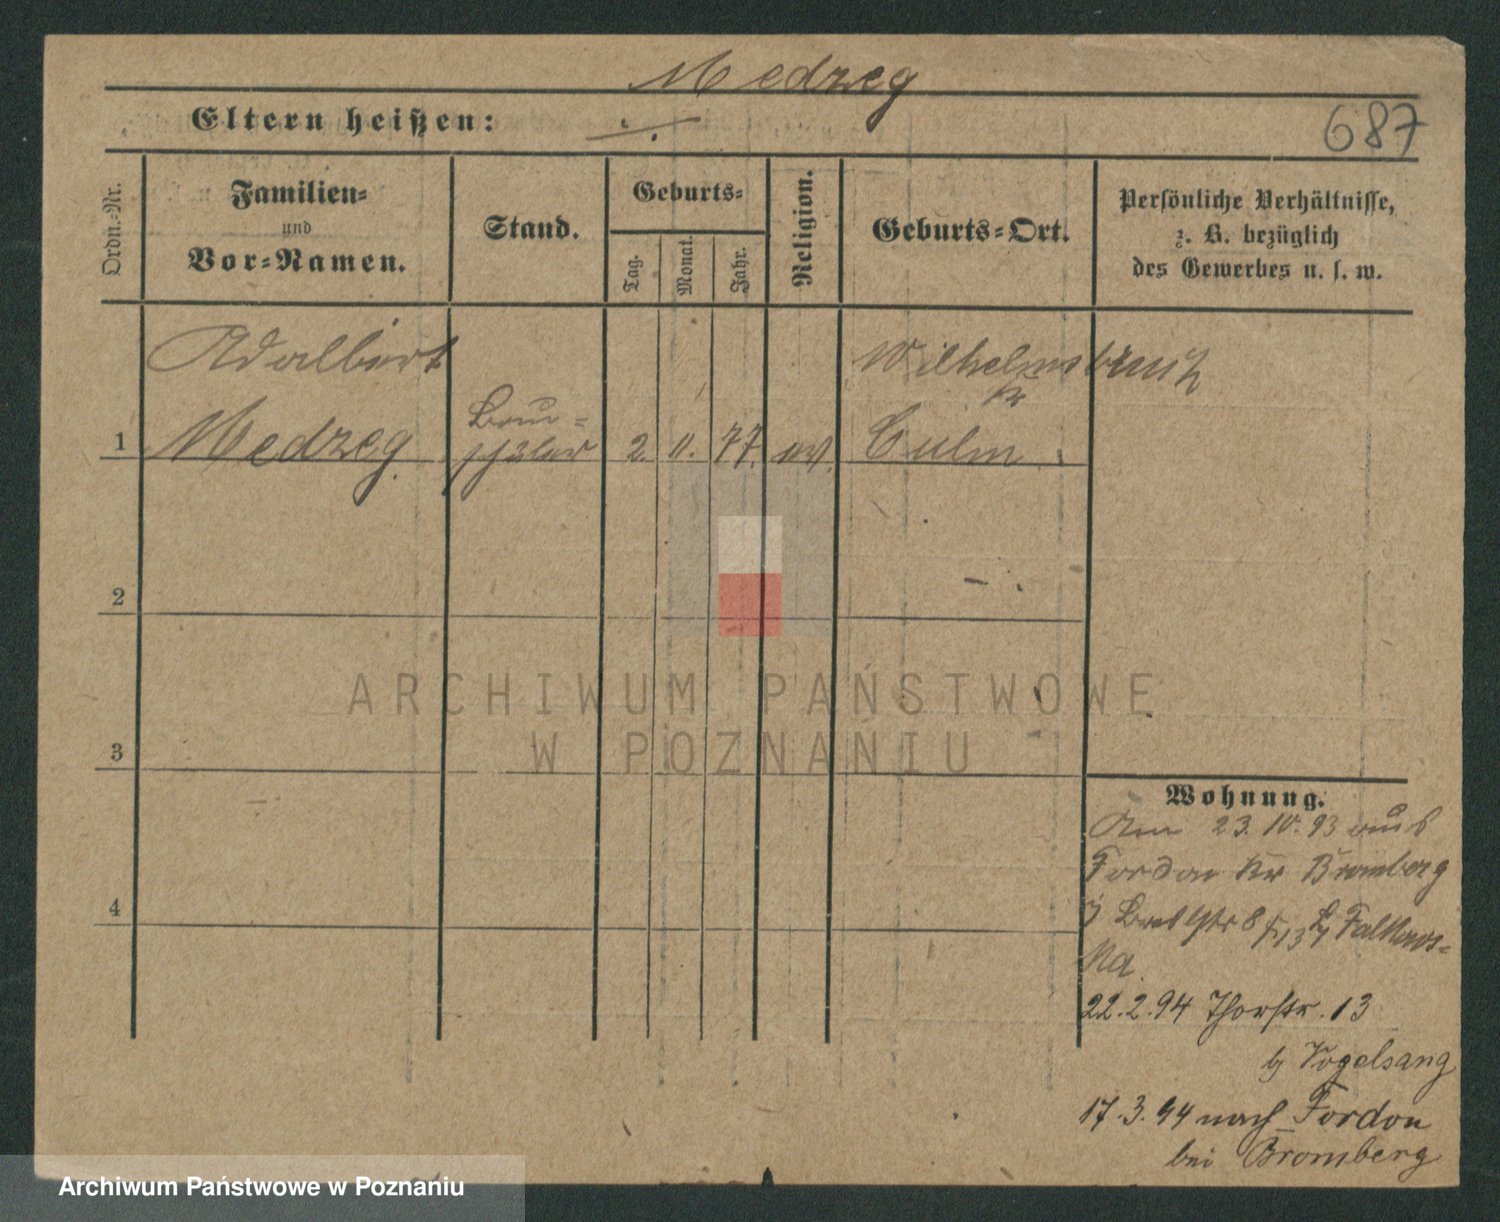 Medzeg
Eltern heißen:
687
Ordn.-Nr.
Familien-
und
Vor-Namen.
Stand.
Geburts-
Tag.
Monat.
Jahr.
Religion.
Geburts-Ort.
Persönliche Verhältnisse,
z. B. bezüglich
des Gewerbes u. s. w.
Adalbert
Wilhelmsbruch
Kr
1 Medzeg. Bau-
schüler 2. 11. 77. ev. Culm
2
3
4
ARCHIWUM PAŃSTWOWE
W POZNANIU
Wohnung.
Am 23. 10. 93 aus
Fordon Kr Bromberg
22.2.94 Thorstr. 13
bj Vogelsang
17.3.94 nach Fordon
bei Bromberg
Archiwum Państwowe w Poznaniu